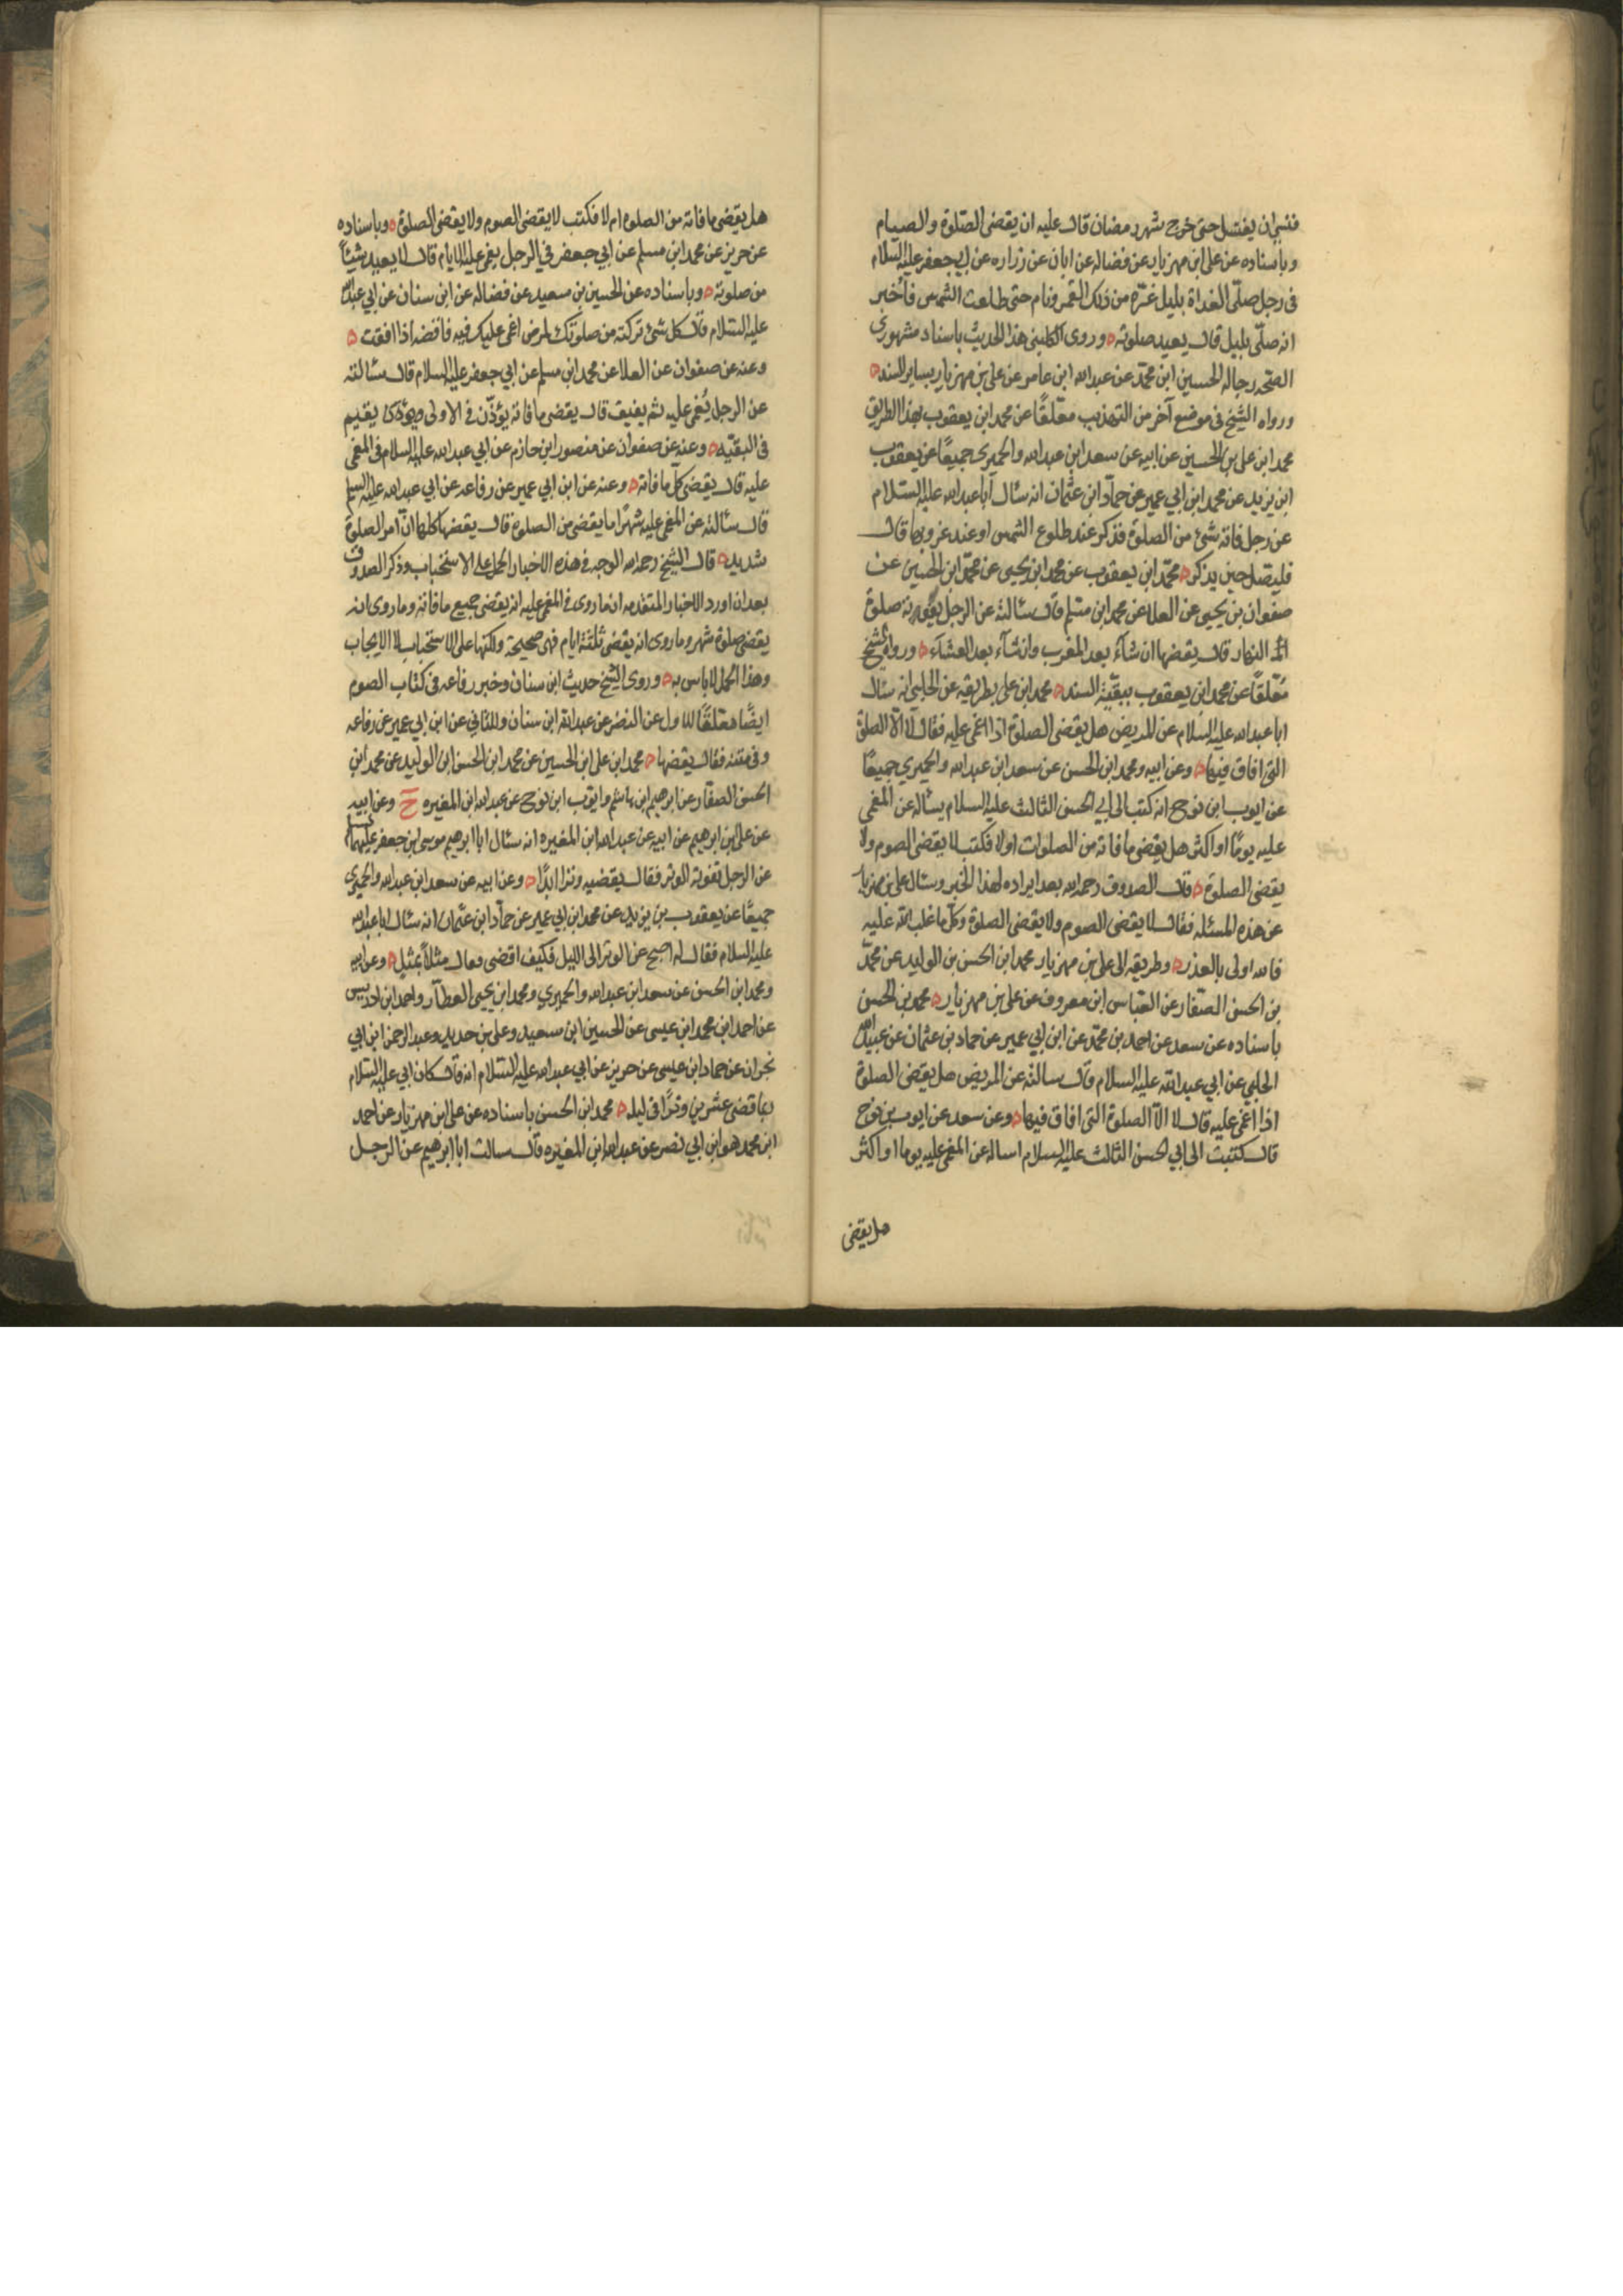 فنسى ان يغتسل حتى خرج شهر رمضان قال عليه ان يقضى الصّلوة والصيام
وباسناده عن على ابن مهزيار عن فضاله عن ابان عن زراره عن ابى جعفر عليه السلام
فى رجل صلّى الغداة بليل غرّه من ذلك القمر ونام حتى طلعت الشمس فاُخبر
انه صلّى بليل قال يعيد صلوته ٥ وروى الكلينى هذا الحديث باسناد مشهورى
الصّحه رجاله الحسين ابن محمّد عن عبدالله ابن عامر عن على بن مهزيار بساير السند ٥
ورواه الشيخ فى موضع آخر من التهذيب معلّقًا عن محمد ابن يعقوب بهذا الطريق
محمد ابن على بن الحسين عن ابيه عن سعد ابن عبدالله والحميرى جميعًا عن يعقوب
ابن يزيد عن محمد ابن ابى عمير عن حمّاد ابن عثمان انه سئال اباعبدالله عليه السّلام
عن رجل فاته شئ من الصلوة فذكر عند طلوع الشمس او عند غروبها قال
فليصل حين يذكر ٥ محمّد ابن يعقوب عن محمد ابن يحيى عن محمّد ابن الحسين عن
صفوان بن يحيى عن العلا عن محمد ابن مسلم قال سئالته عن الرجل يفوته صلوة
النهار قال يقضها ان شآء بعد المغرب وان شآء بعد العشآء ٥ ورواه الشيخ
مُعّلقًا عن محمد ابن يعقوب ببقيّة السند ٥ محمد ابن على بطريقه عن الحلبى انه سئال
اباعبدالله عليه السّلام عن المريض هل يقضى الصلوة اذا اغمى عليه فقال لا الّا الصلوة
التى افاق فيها ٥ وعن ابيه ومحمد ابن الحسن عن سعد ابن عبدالله والحميرى جميعًا
عن ايوب ابن نوح انه كتب الى ابى الحسن الثالث عليه السلام يسأله عن المغمى
عليه يومًا او اكثر هل يقضى ما فاته من الصلوات اولا فكتب لا يقضى الصوم ولا
يقضى الصلوة ٥ قال الصدوق رحمه الله بعد ايراده لهذا الخبر وسئال على بن مهزيار
عن هذه المسئله فقال لا يقضى الصوم ولا يقضى الصلوة وكلّ ما غلب الله عليه
فالله اولى بالعذر ٥ وطريقه الى على بن مهزيار محمد ابن الحسن بن الوليد عن محمّد
بن الحسن الصّفار عن العبّاس ابن معروف عن على بن مهزيار ٥ محمد بن الحسن
باسناده عن سعد عن احمد بن محمّد عن ابن ابى عمير عن حماد بن عثمان عن عبيدالله
الحلبى عن ابى عبدالله عليه السلام قال سالته عن المريض هل يقضى الصلوة
اذا اُغمى عليه قال لا الّا الصلوة التى افاق فيها ٥ وعن سعد عن ايوب بن نوح
قال كتبت الى ابى الحسن الثالث عليه السلام اساله عن المغمى عليه يوما او اكثر
هل يقضى
هل يقضى ما فاته من الصلوة ام لا فكتب لا يقضى الصوم ولا يقضى الصلوة ٥ وباسناده
عن حريز عن محمد ابن مسلم عن ابى جعفر فى الرجل يغمى عليه الايام قال لا يعيد شيئًا
من صلوته ٥ وباسناده عن الحسين بن سعيد عن فضاله عن ابن سنان عن ابى عبدالله
عليه السّلام قال كل شئ تركته من صلوتك لمرض اغمى عليك فيه فاقضه اذا افقت ٥
وعنه عن صفوان عن العلا عن محمد ابن مسلم عن ابى جعفر عليه السلام قال سئالته
عن الرجل يُغمى عليه ثم يفيق قال يقضى ما فاته يؤذّن فى الاولى ويقيم
فى البقيّه ٥ وعنه عن صفوان عن منصور ابن حازم عن ابى عبدالله عليه السلام فى المغمى
عليه قال يقضى كل ما فاته ٥ وعنه عن ابن ابى عمير عن رفاعه عن ابى عبدالله عليه السلم
قال سئالته عن المغمى عليه شهرًا ما يقضى من الصلوة قال يقضها كلها انّ امر الصلوة
شديد ٥ قال الشيخ رحمه الله الوجه فى هذه الاخبار الحمل على الاستحباب وذكر الصدوق
بعد ان اورد الاخبار المتقدمه ان ما روى فى المغمى عليه انه يقضى جميع ما فاته وما روى انه
يقضى صلوة شهر وما روى انه يقضى ثلثة ايام فهى صحيحة ولكنّها على الاستحباب لا الايجاب
وهذا الحمل لا باس به ٥ وروى الشيخ حديث ابن سنان وخبر رفاعه فى كتاب الصوم
ايضًا معلّقًا للاول عن النضر عن عبدالله ابن سنان وللثانى عن ابن ابى عمير عن رفاعه
وفى متنه فقال يقضها ٥ محمد ابن على ابن الحسين عن محمد ابن الحسن ابن الوليد عن محمد ابن
الحسن الصفّار عن ابرهيم ابن هاشم وايوب ابن نوح عن عبدالله ابن المغيره ح وعن ابيه
عن على ابن ابرهيم عن ابيه عن عبدالله ابن المغيره انه سئال ابا ابرهيم موسى ابن جعفر عليهما السلام
عن الرجل تفوته الوتر فقال يقضيه وترا ابدًا ٥ وعن ابيه عن سعد ابن عبدالله والحميرى
جميعًا عن يعقوب بن يزيد عن محمد ابن ابى عمير عن حمّاد ابن عثمان انه سئال اباعبدالله
عليه السلام فقال له اصبح عن الوتر الى الليل فكيف اقضى فقال مثلًا بمثل ٥ وعن ابيه
ومحمد ابن الحسن عن سعد ابن عبدالله والحميرى ومحمد ابن يحيى العطّار واحمد ابن ادريس
عن احمد ابن محمد ابن عيسى عن الحسين ابن سعيد وعلى بن حديد وعبدالرحمن ابن ابى
نجران عن حماد ابن عيسى عن حريز عن ابى عبدالله عليه السّلام انه قال كان ابى عليه السّلام
ربما قضى عشرين وترًا فى ليله ٥ محمد ابن الحسن باسناده عن على ابن مهزيار عن احمد
ابن محمد هو ابن ابى نصر عن عبدالله ابن المغيره قال سالت ابا ابرهيم عن الرجل